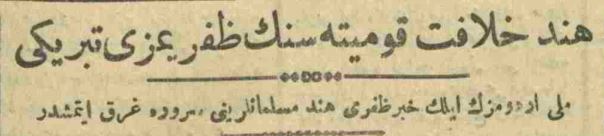 هند خلافت قومیته سنك ظفریمزی تبریکی
ملی اردومزك ایلك خبر ظفری هند مسلمانلرینی سروره غرق ایتمشدر